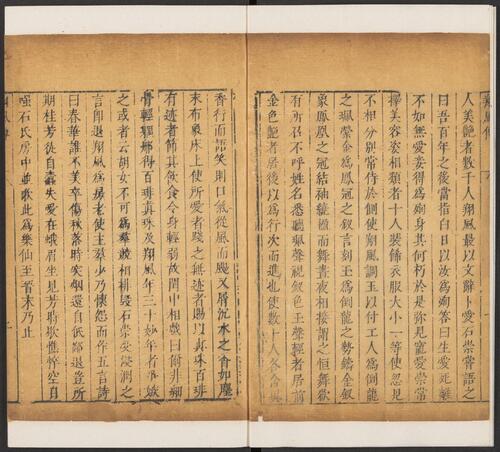 翔風傳
人美艷者數千人翔風最以文辭卜愛石崇嘗語之
曰吾百年之後當指白日以汝爲殉答曰生愛死離
不如無愛妾得爲殉身其何朽於是彌見寵愛崇常
擇美容姿相類者十人裝飾衣服大小一等使忽見
不相分別常侍於側使翔風調玉以付工人爲倒龍
之珮縈金爲鳳冠之釵言刻玉爲倒龍之勢鑄金釵
象鳳凰之冠結袖繞楹而舞晝夜相接謂之恒舞欲
有所召不呼姓名悉聽珮聲視釵色玉聲輕者居前
金色艷者居後以爲行次而進也使數十人各含異
香行而語笑則口氣從風而颺又屑沉水之香如塵
末布象床上使所愛者踐之無迹者賜以真珠百琲
有迹者節其飲食令身輕弱故閨中相戲曰爾非細
骨輕軀那得百琲真珠及翔風年三十妙年者爭嫉
之或者云胡女不可爲羣競相排毀石崇受浸潤之
言即退翔風爲房老使主羣少乃懷怨而作五言詩
曰春華誰不美卒傷秋落時突烟還自低鄙退豈所
期桂芳徒自蠹失愛在蛾眉坐見芳時歇憔悴空自
嗤石氏房中並歌此爲樂仙至晉末乃止